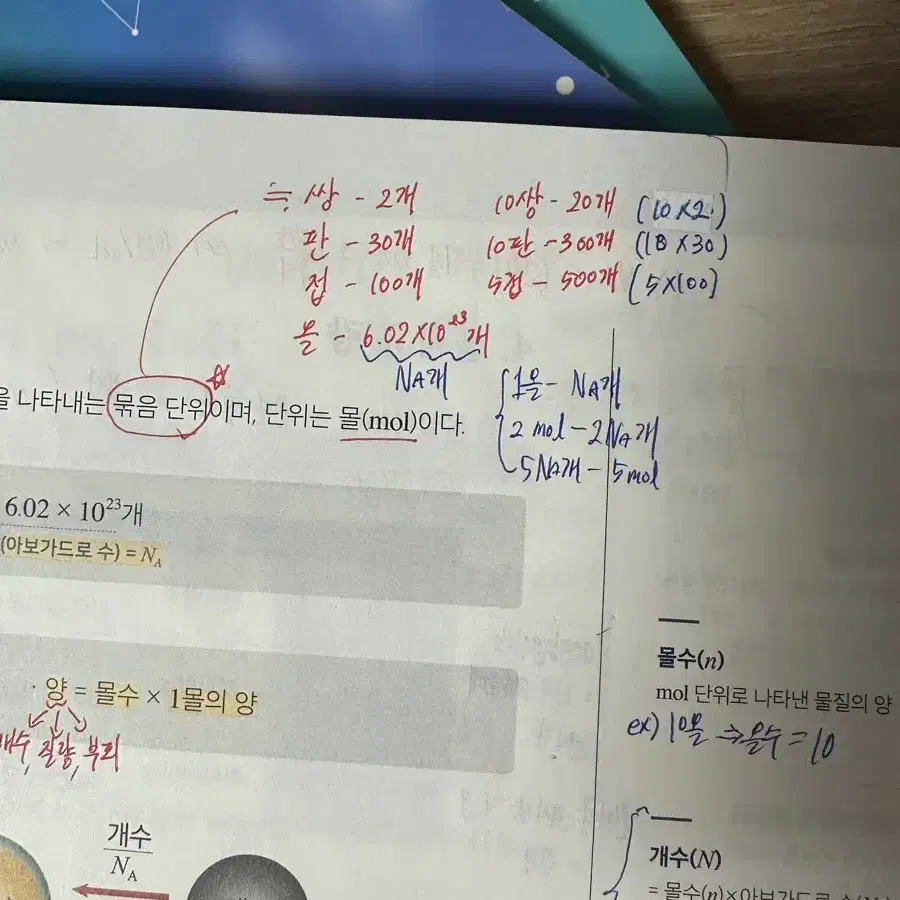 ≒ 쌍 - 2개 10상 - 20개 (10×2)
판 - 30개 10판 - 300개 (10×30)
접 - 100개 5접 - 500개 (5×100)
몰 - 6.02×10²³개
NA개
1몰 - NA개
2 mol - 2NA개
5NA개 - 5mol
을 나타내는 묶음 단위이며, 단위는 몰(mol)이다.
6.02 × 10²³개
(아보가드로 수) = NA
양 = 몰수 × 1몰의 양
개수, 질량, 부피
개수
NA
몰수(n)
mol 단위로 나타낸 물질의 양
ex) 10몰 → 몰수 = 10
개수(N)
= 몰수(n)×아보가드로 수